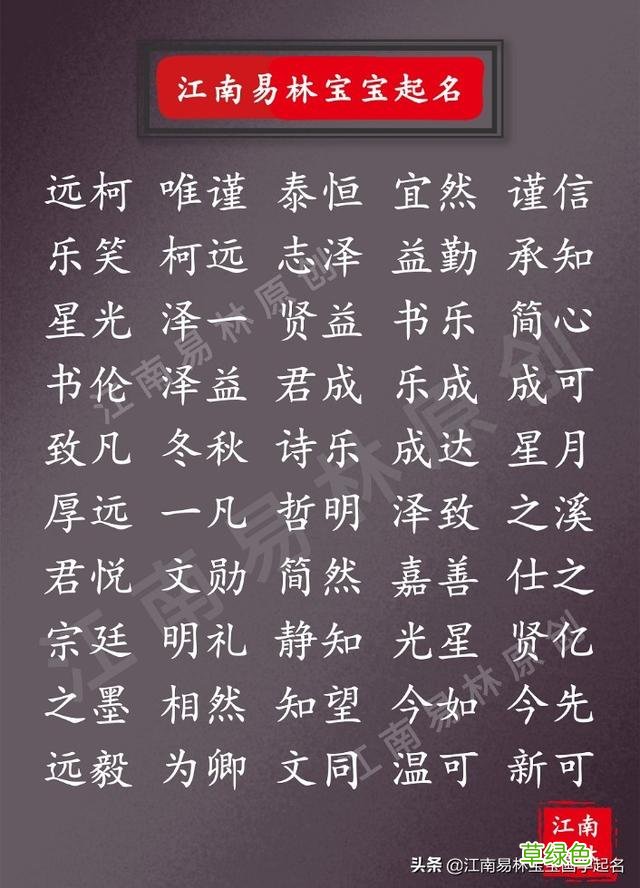 江南易林宝宝起名
远柯 唯谨 泰恒 宜然 谨信
乐笑 柯远 志泽 益勤 承知
星光 泽一 贤益 书乐 简心
书伦 泽益 君成 乐成 成可
致凡 冬秋 诗乐 成达 星月
厚远 一凡 哲明 泽致 之溪
君悦 文勋 简然 嘉善 仕之
宗廷 明礼 静知 光星 贤亿
之墨 相然 知望 今如 今先
远毅 为卿 文同 温可 新可
江南易林原创
江南易林原创
江南易林原创
江南
草绿色
头条 @江南易林宝宝国学起名